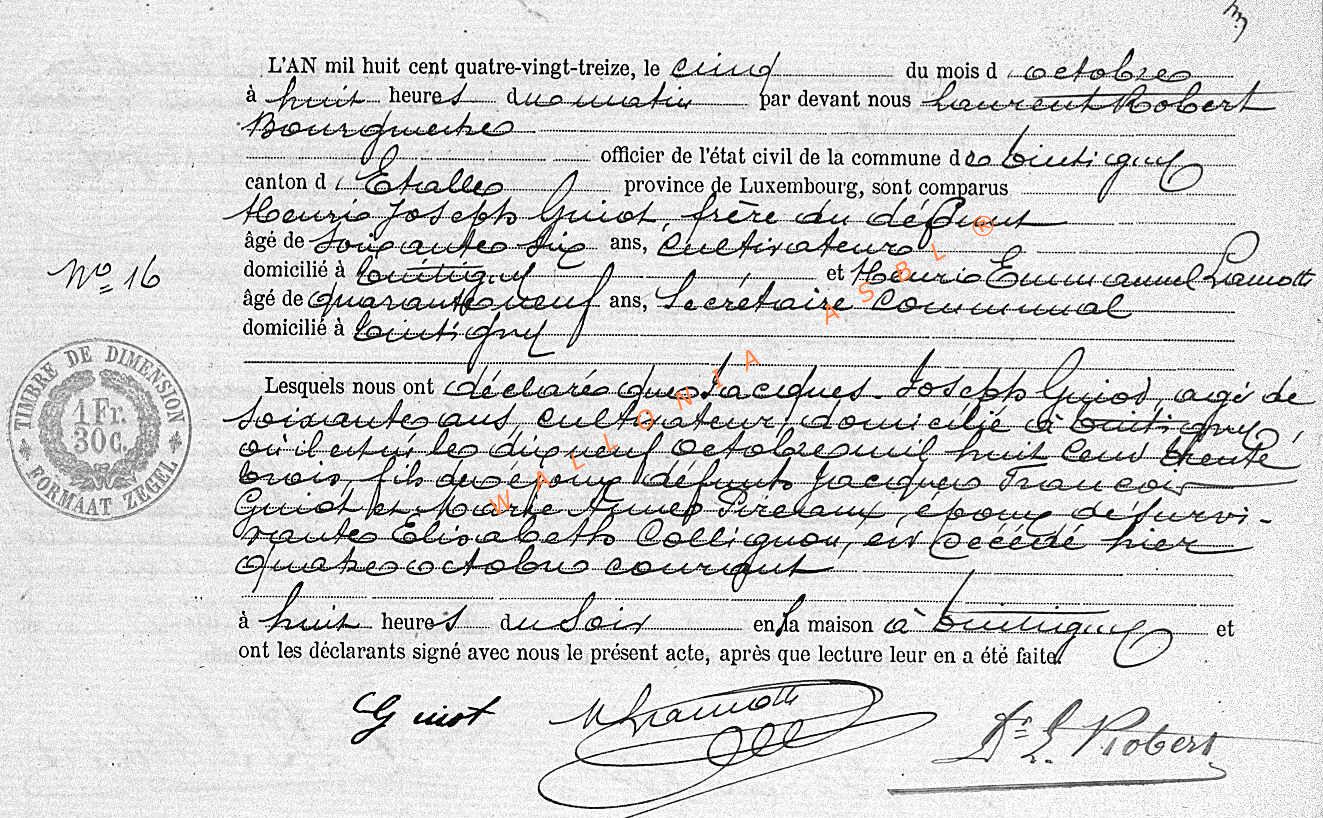 L'AN mil huit cent quatre-vingt-treize, le cinq du mois d'octobre
à huit heures du matin par devant nous Laurent Robert
Bourgmestre
officier de l'état civil de la commune de Tintigny
canton d'Etalle province de Luxembourg, sont comparus
Henri Joseph Guiot, frère du défunt
âgé de soixante six ans, cultivateur
domicilié à Tintigny et Henri Emmanuel Lamotte
N° 16
âgé de quarante neuf ans, Secrétaire Communal
domicilié à Tintigny
Lesquels nous ont déclaré que Jacques Joseph Guiot, agé de
soixante ans, cultivateur, domicilié à Tintigny,
où il est né le dix neuf octobre mil huit cent trente
trois, fils des époux défunts Jacques François
Guiot et Marie Anne Pireaux, époux de survi-
vante Elisabeth Collignon, est décédé hier
quatre octobre courant
à huit heures du soir en sa maison à Tintigny et
ont les déclarants signé avec nous le présent acte, après que lecture leur en a été faite.
TIMBRE DE DIMENSION
1 Fr.
30 C.
FORMAAT ZEGEL
WALLONIA ASBL ®
Guiot Lamotte Dr L. Robert